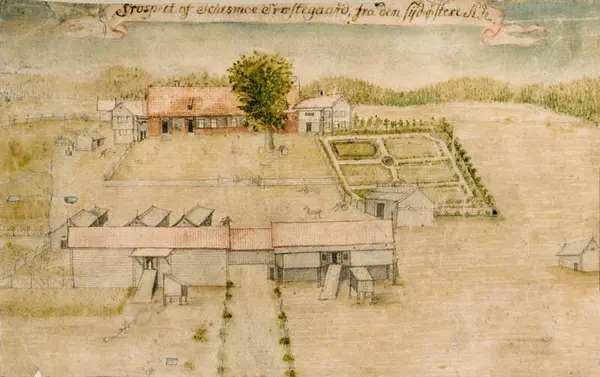 Prospect af Schesmoe Præstegaard, fra den syd-østere Side